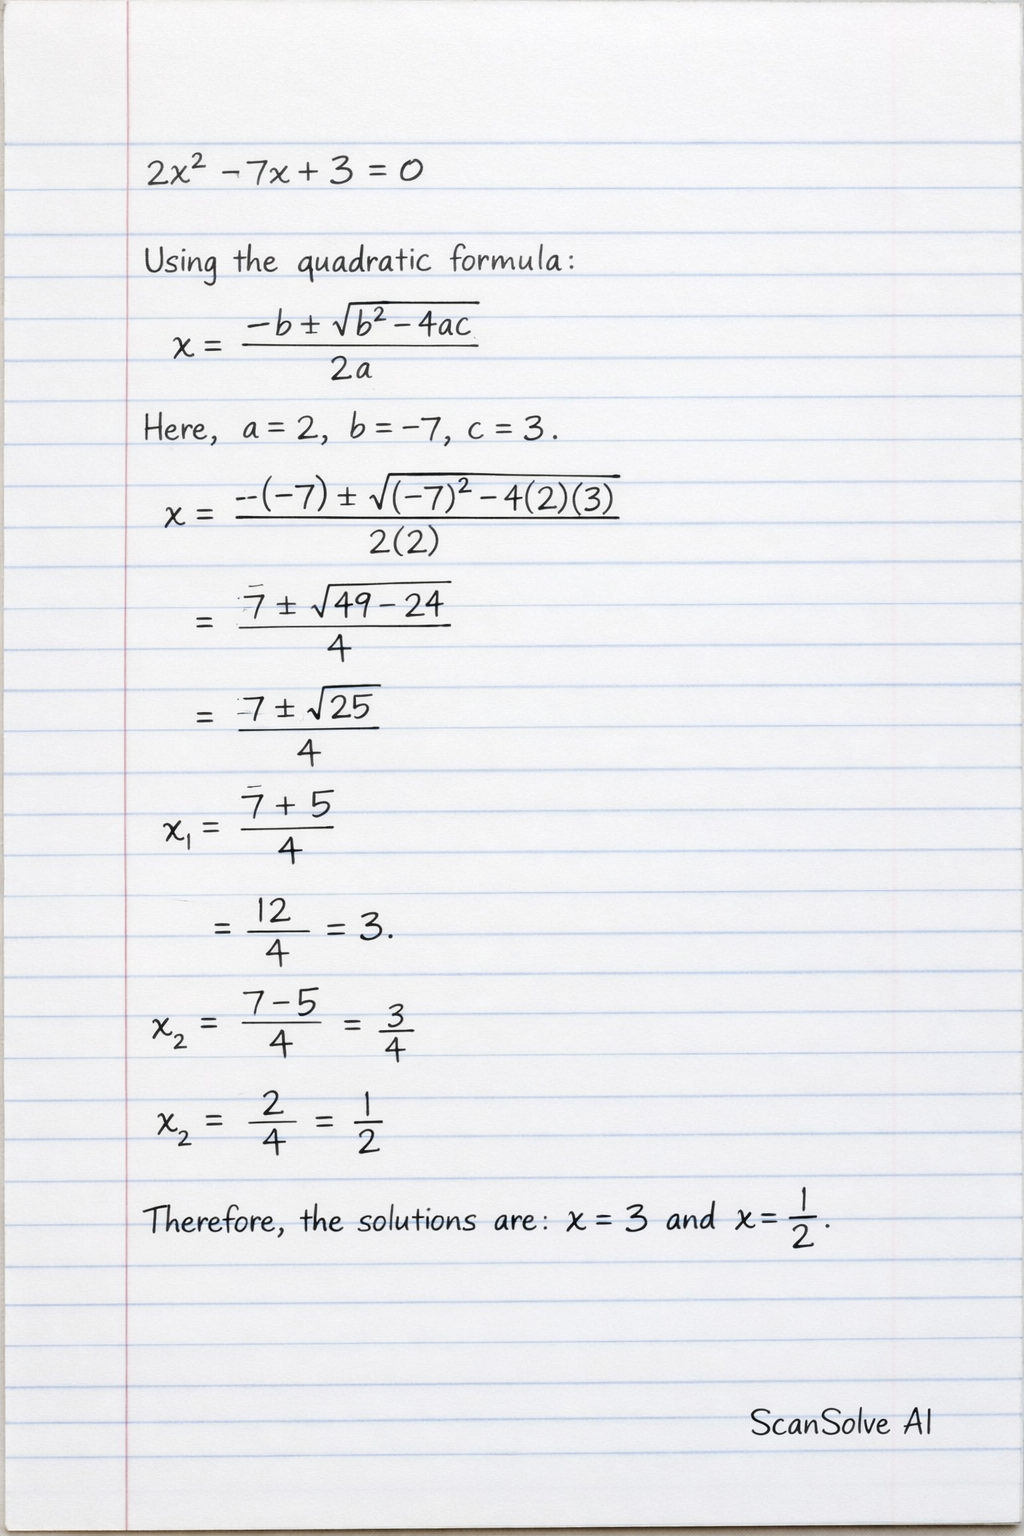 2x² - 7x + 3 = 0
Using the quadratic formula:
x = (-b ± √(b² - 4ac)) / 2a
Here, a = 2, b = -7, c = 3.
x = (--(-7) ± √((-7)² - 4(2)(3))) / 2(2)
= (‾7 ± √(49 - 24)) / 4
= (-7 ± √25) / 4
x₁ = (‾7 + 5) / 4
= 12/4 = 3.
x₂ = (7 - 5)/4 = 3/4
x₂ = 2/4 = 1/2
Therefore, the solutions are: x = 3 and x = 1/2.
ScanSolve AI